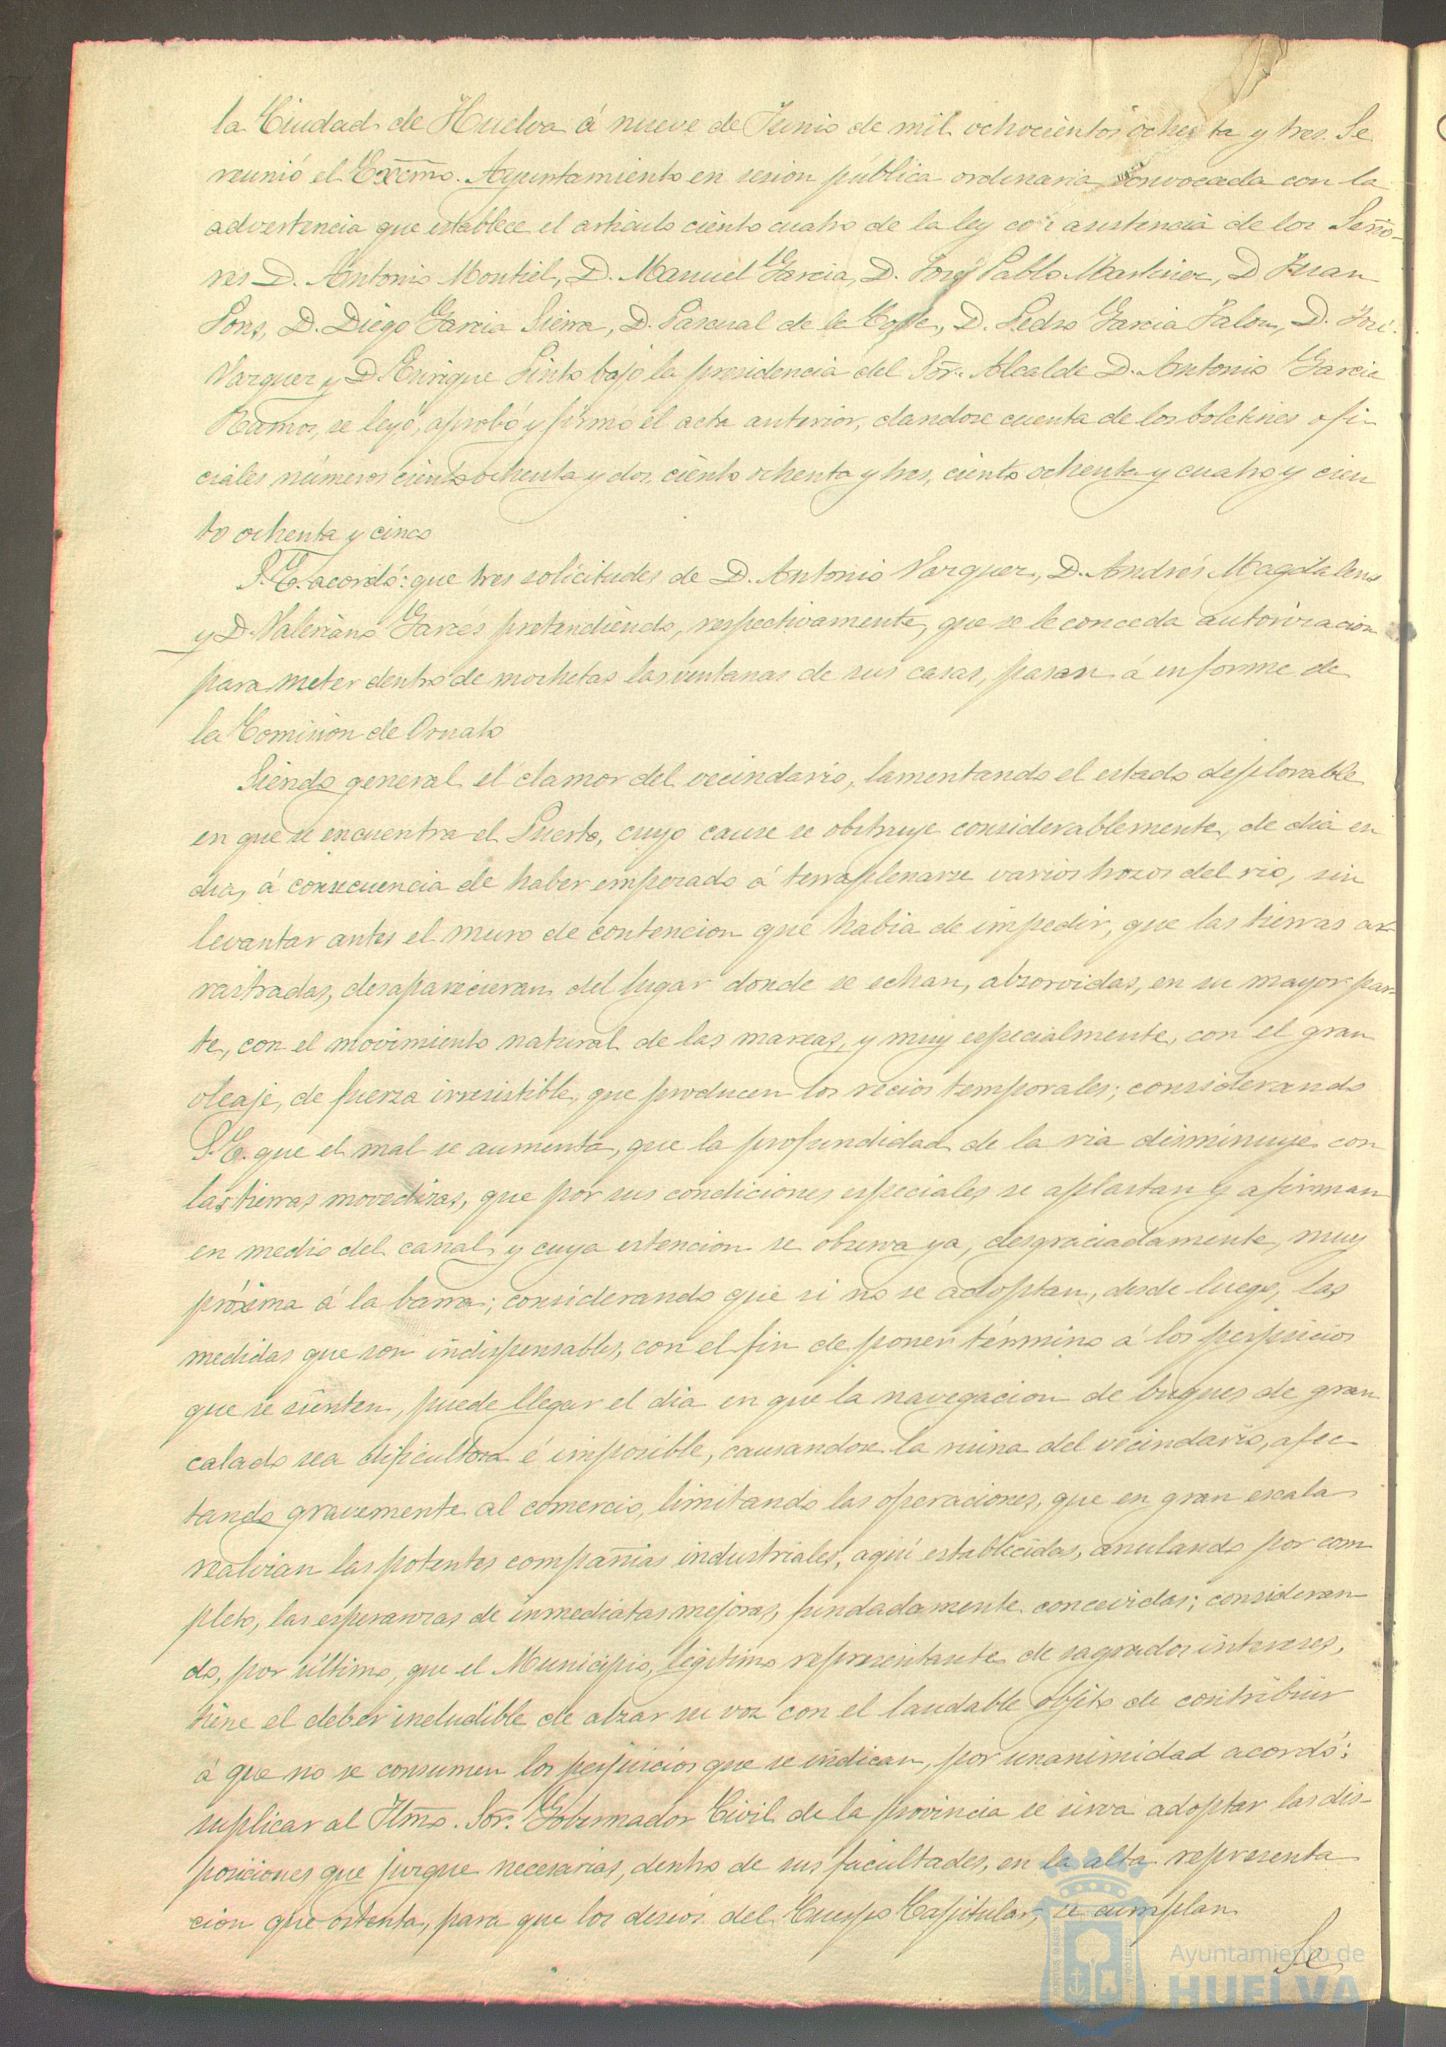 la Ciudad de Huelva á nueve de Junio de mil ochocientos ochenta y tres. Se
reunió el Excmo. Ayuntamiento en sesion pública ordinaria, convocada con la
advertencia que establece el articulo ciento cuatro de la ley con asistencia de los Seño-
res D. Antonio Montiel, D. Manuel Garcia, D. José Pablo Martinez, D Juan
Pons, D. Diego Garcia Sierra, D. Pascual de la D. Pedro Garcia D. José
Vazquez y D. Enrique Pinto bajo la presidencia del Sor. Alcalde D. Antonio Garcia
Ramos, se leyó, aprobó y firmó el acta anterior, dandose cuenta de los boletines ofi-
ciales números ciento ochenta y dos, ciento ochenta y tres, ciento ochenta y cuatro y cien
to ochenta y cinco
S. E. acordó: que tres solicitudes de D. Antonio Vazquez, D. Andrés Magdalena
y D. Valeriano Garcés pretendiendo, respectivamente, que se le conceda autorizacion
para meter dentro de mochetas las ventanas de sus casas, pasan á informe de
la Comision de Ornato
Siendo general el clamor del vecindario, lamentando el estado deplorable
en que se encuentra el Puerto, cuyo cauce se obstruye considerablemente, de dia en
dia, á consecuencia de haber empezado á terraplenarse varios trozos del rio, sin
levantar antes el muro de contencion que habia de impedir, que las tierras ar-
rastradas, desaparecieran del lugar donde se echan, absorvidas, en su mayor par-
te, con el movimiento natural de las mareas, y muy especialmente, con el gran
oleaje, de fuerza irresistible, que producen los recios temporales; considerando
S. E. que el mal se aumenta, que la profundidad de la ria disminuye con
las tierras movedizas, que por sus condiciones especiales se aplastan y afirman
en medio del canal y cuya estencion se observa ya, desgraciadamente, muy
próxima á la barra; considerando que si no se adoptan, desde luego, las
medidas que son indispensables, con el fin de poner término á los perjuicios
que se sienten, puede llegar el dia en que la navegacion de buques de gran
calado sea dificultosa é imposible, causandose la ruina del vecindario, afec
tando gravemente al comercio, limitando las operaciones, que en gran escala
realizan las potentes compañias industriales, aqui establecidas, anulando por com
pleto, las esperanzas de inmediatas mejoras, fundadamente concevidas; consideran
do, por último, que el Municipio, legitimo representante de sagrados intereses,
tiene el deber ineludible de alzar su voz con el laudable objeto de contribuir
á que no se consumen los perjuicios que se indican, por unanimidad acordó:
suplicar al Iltmo. Sor. Gobernador Civil de la provincia se sirva adoptar las dis-
posiciones que juzgue necesarias, dentro de sus facultades, en la alta representa
cion que ostenta, para que los deseos del Cuerpo Capitular, se cumplan
Se
Ayuntamiento de
HUELVA